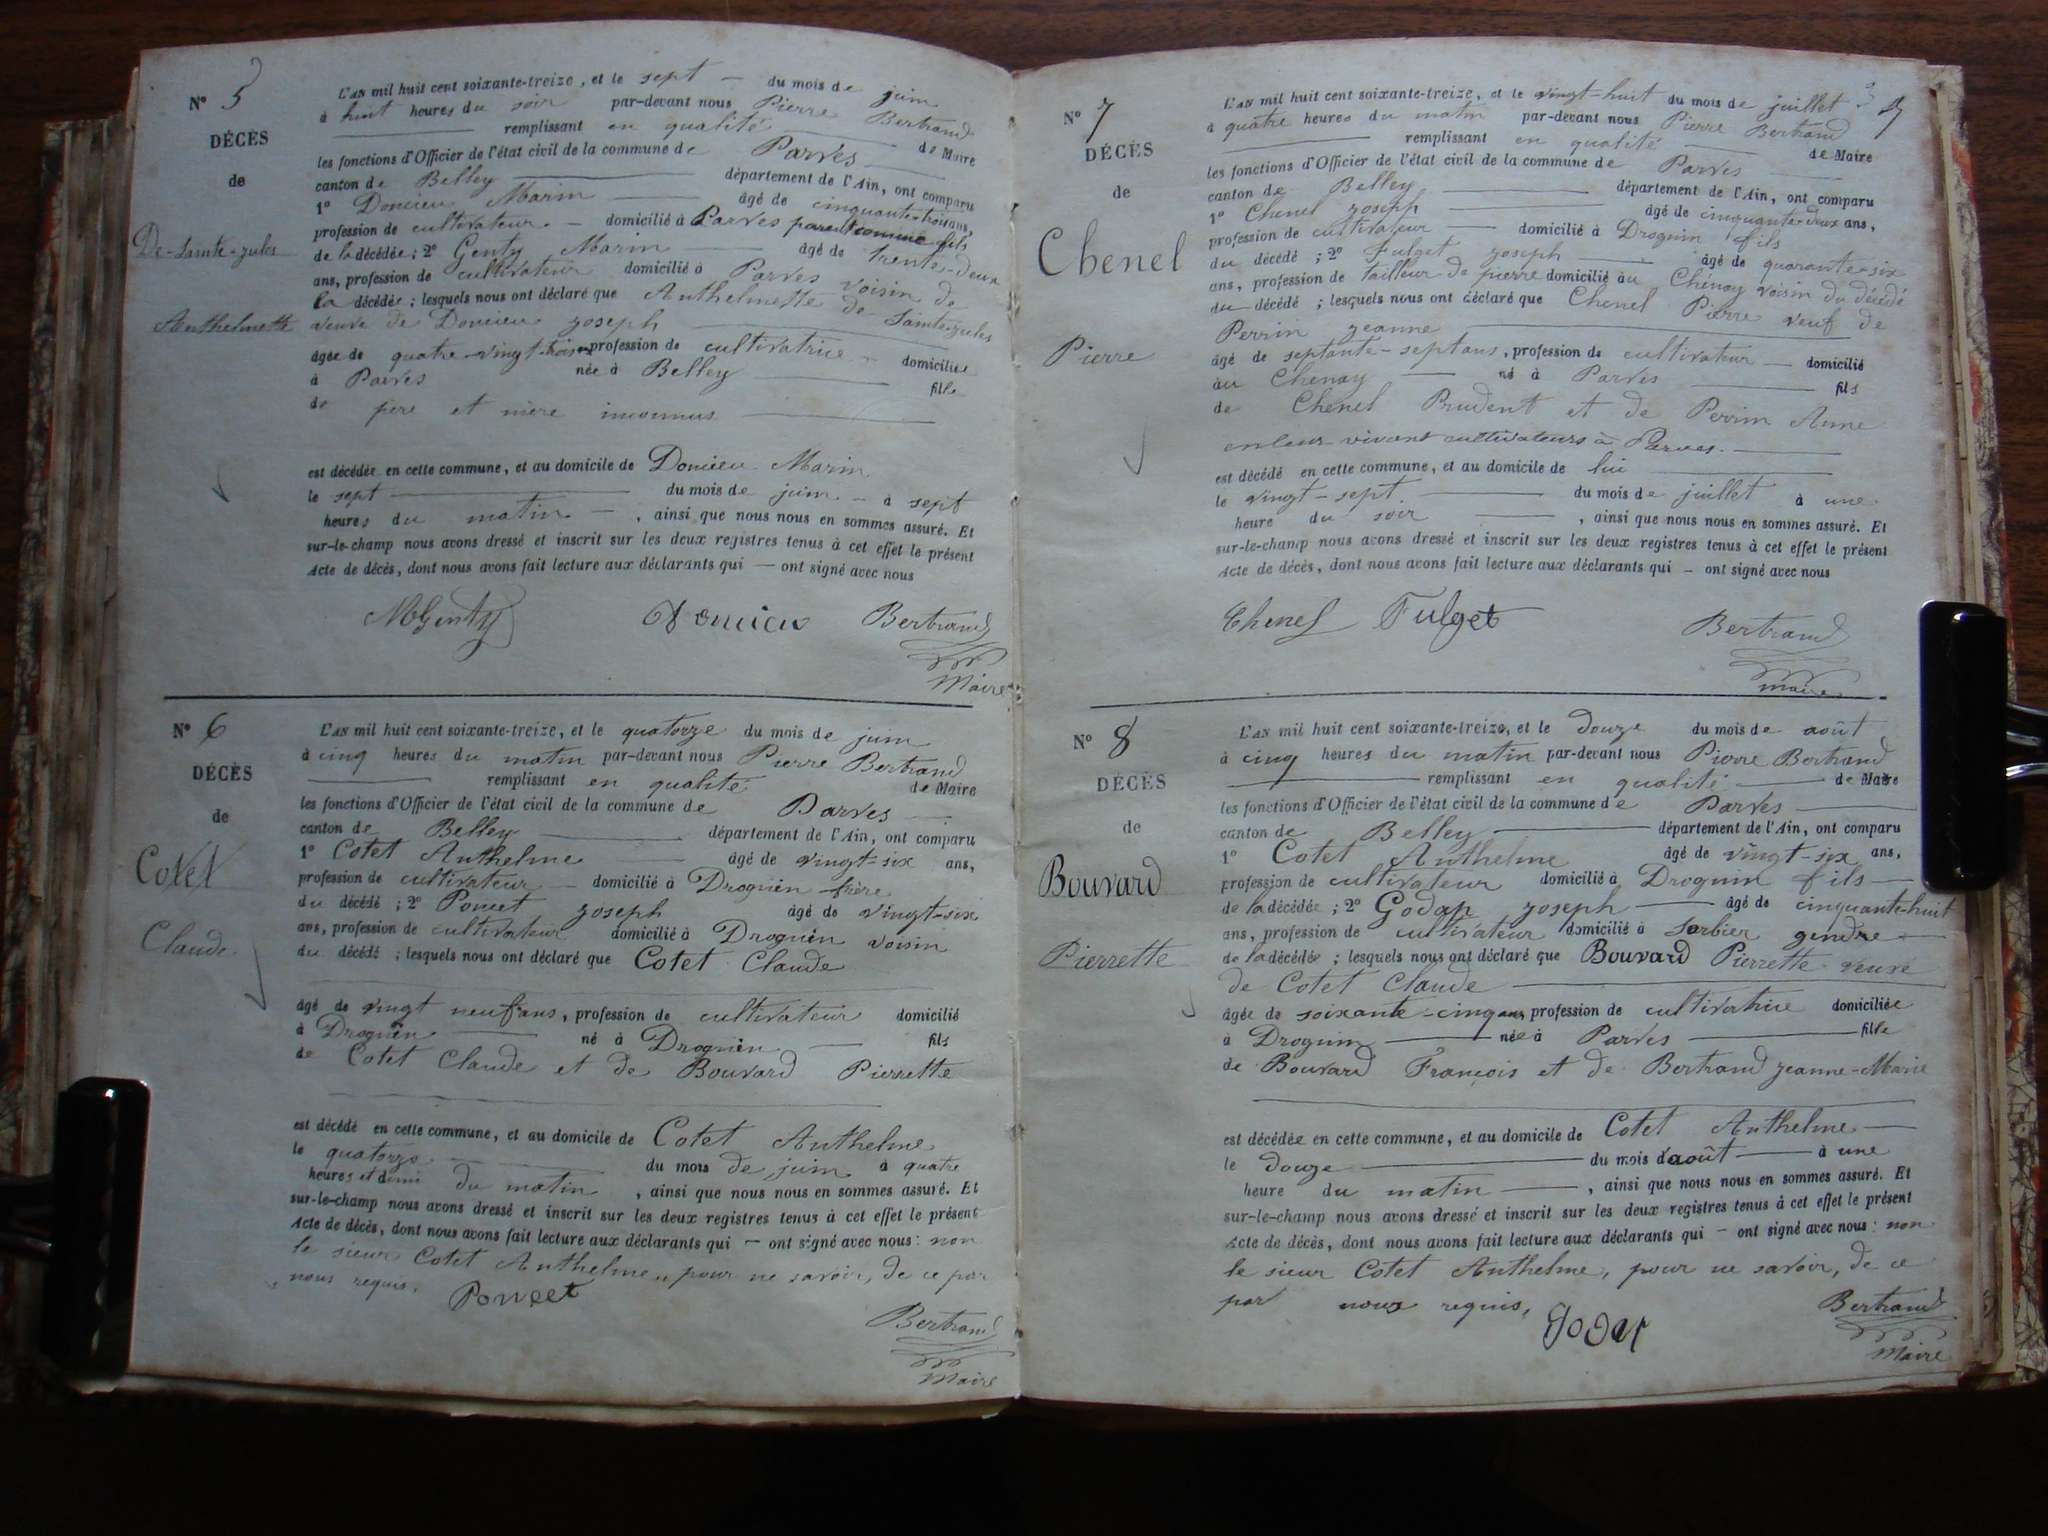 N° 5
DÉCÈS
de
De-Sainte-Jules
Anthelmette
L'AN mil huit cent soixante-treize, et le sept — du mois de juin
à huit heures du soir par-devant nous Pierre Bertrand
remplissant en qualité de Maire
les fonctions d'Officier de l'état civil de la commune de Parves
canton de Belley département de l'Ain, ont comparu
1° Doncieu Marin âgé de cinquante-trois ans,
profession de cultivateur — domicilié à Parves fils
de la décédée; 2° Genty Marin âgé de trente-deux
ans, profession de cultivateur domicilié à Parves voisin de
la décédée; lesquels nous ont déclaré que Anthelmette de Sainte-Jules
veuve de Doncieu Joseph
âgée de quatre-vingt-trois ans profession de cultivatrice domiciliée
à Parves née à Belley fille
de père et mère inconnus
est décédée en cette commune, et au domicile de Doncieu Marin
le sept du mois de juin à sept
heures du matin, ainsi que nous nous en sommes assuré. Et
sur-le-champ nous avons dressé et inscrit sur les deux registres tenus à cet effet le présent
Acte de décès, dont nous avons fait lecture aux déclarants qui — ont signé avec nous
MGenty Doncieu Bertrand
Maire
N° 6
DÉCÈS
de
Cotet
Claude
L'AN mil huit cent soixante-treize, et le quatorze du mois de juin
à cinq heures du matin par-devant nous Pierre Bertrand
remplissant en qualité de Maire
les fonctions d'Officier de l'état civil de la commune de Parves
canton de Belley département de l'Ain, ont comparu
1° Cotet Anthelme âgé de vingt-six ans,
profession de cultivateur — domicilié à Drognin frère
du décédé; 2° Poncet Joseph âgé de vingt-six
ans, profession de cultivateur domicilié à Drognin voisin
du décédé; lesquels nous ont déclaré que Cotet Claude
âgé de vingt neuf ans, profession de cultivateur domicilié
à Drognin né à Drognin fils
de Cotet Claude et de Bouvard Pierrette
est décédé en cette commune, et au domicile de Cotet Anthelme
le quatorze du mois de juin à quatre
heures et demi du matin, ainsi que nous nous en sommes assuré. Et
sur-le-champ nous avons dressé et inscrit sur les deux registres tenus à cet effet le présent
Acte de décès, dont nous avons fait lecture aux déclarants qui — ont signé avec nous: non
le sieur Cotet Anthelme, pour ne savoir, de ce par
nous requis.
Poncet
Bertrand
Maire
N° 7
DÉCÈS
de
Chenel
Pierre
L'AN mil huit cent soixante-treize, et le vingt-huit du mois de juillet
à quatre heures du matin par-devant nous Pierre Bertrand
remplissant en qualité de Maire
les fonctions d'Officier de l'état civil de la commune de Parves
canton de Belley département de l'Ain, ont comparu
1° Chenel Joseph âgé de cinquante-deux ans,
profession de cultivateur — domicilié à Drognin fils
du décédé; 2° Fulget Joseph âgé de quarante-six
ans, profession de tailleur de pierre domicilié au Chenay voisin du décédé
du décédé; lesquels nous ont déclaré que Chenel Pierre veuf de
Perrin Jeanne
âgé de septante-sept ans, profession de cultivateur — domicilié
au Chenay né à Parves fils
de Chenel Prudent et de Perrin Anne
en leur vivant cultivateurs à Parves.
est décédé en cette commune, et au domicile de lui
le vingt-sept du mois de juillet à une
heure du soir, ainsi que nous nous en sommes assuré. Et
sur-le-champ nous avons dressé et inscrit sur les deux registres tenus à cet effet le présent
Acte de décès, dont nous avons fait lecture aux déclarants qui — ont signé avec nous
Chenel Fulget Bertrand
maire
N° 8
DÉCÈS
de
Bouvard
Pierrette
L'AN mil huit cent soixante-treize, et le douze du mois de août
à cinq heures du matin par-devant nous Pierre Bertrand
remplissant en qualité de Maire
les fonctions d'Officier de l'état civil de la commune de Parves
canton de Belley département de l'Ain, ont comparu
1° Cotet Anthelme âgé de vingt-six ans,
profession de cultivateur domicilié à Drognin fils
de la décédée; 2° Godap Joseph âgé de cinquante-huit
ans, profession de cultivateur domicilié à Sorbier gendre
de la décédée; lesquels nous ont déclaré que Bouvard Pierrette veuve
de Cotet Claude
âgée de soixante-cinq ans, profession de cultivatrice domiciliée
à Drognin née à Parves fille
de Bouvard François et de Bertrand Jeanne-Marie
est décédée en cette commune, et au domicile de Cotet Anthelme
le douze du mois d'août à une
heure du matin, ainsi que nous nous en sommes assuré. Et
sur-le-champ nous avons dressé et inscrit sur les deux registres tenus à cet effet le présent
Acte de décès, dont nous avons fait lecture aux déclarants qui — ont signé avec nous: non
le sieur Cotet Anthelme, pour ne savoir, de ce
par nous requis,
Bertrand
Maire